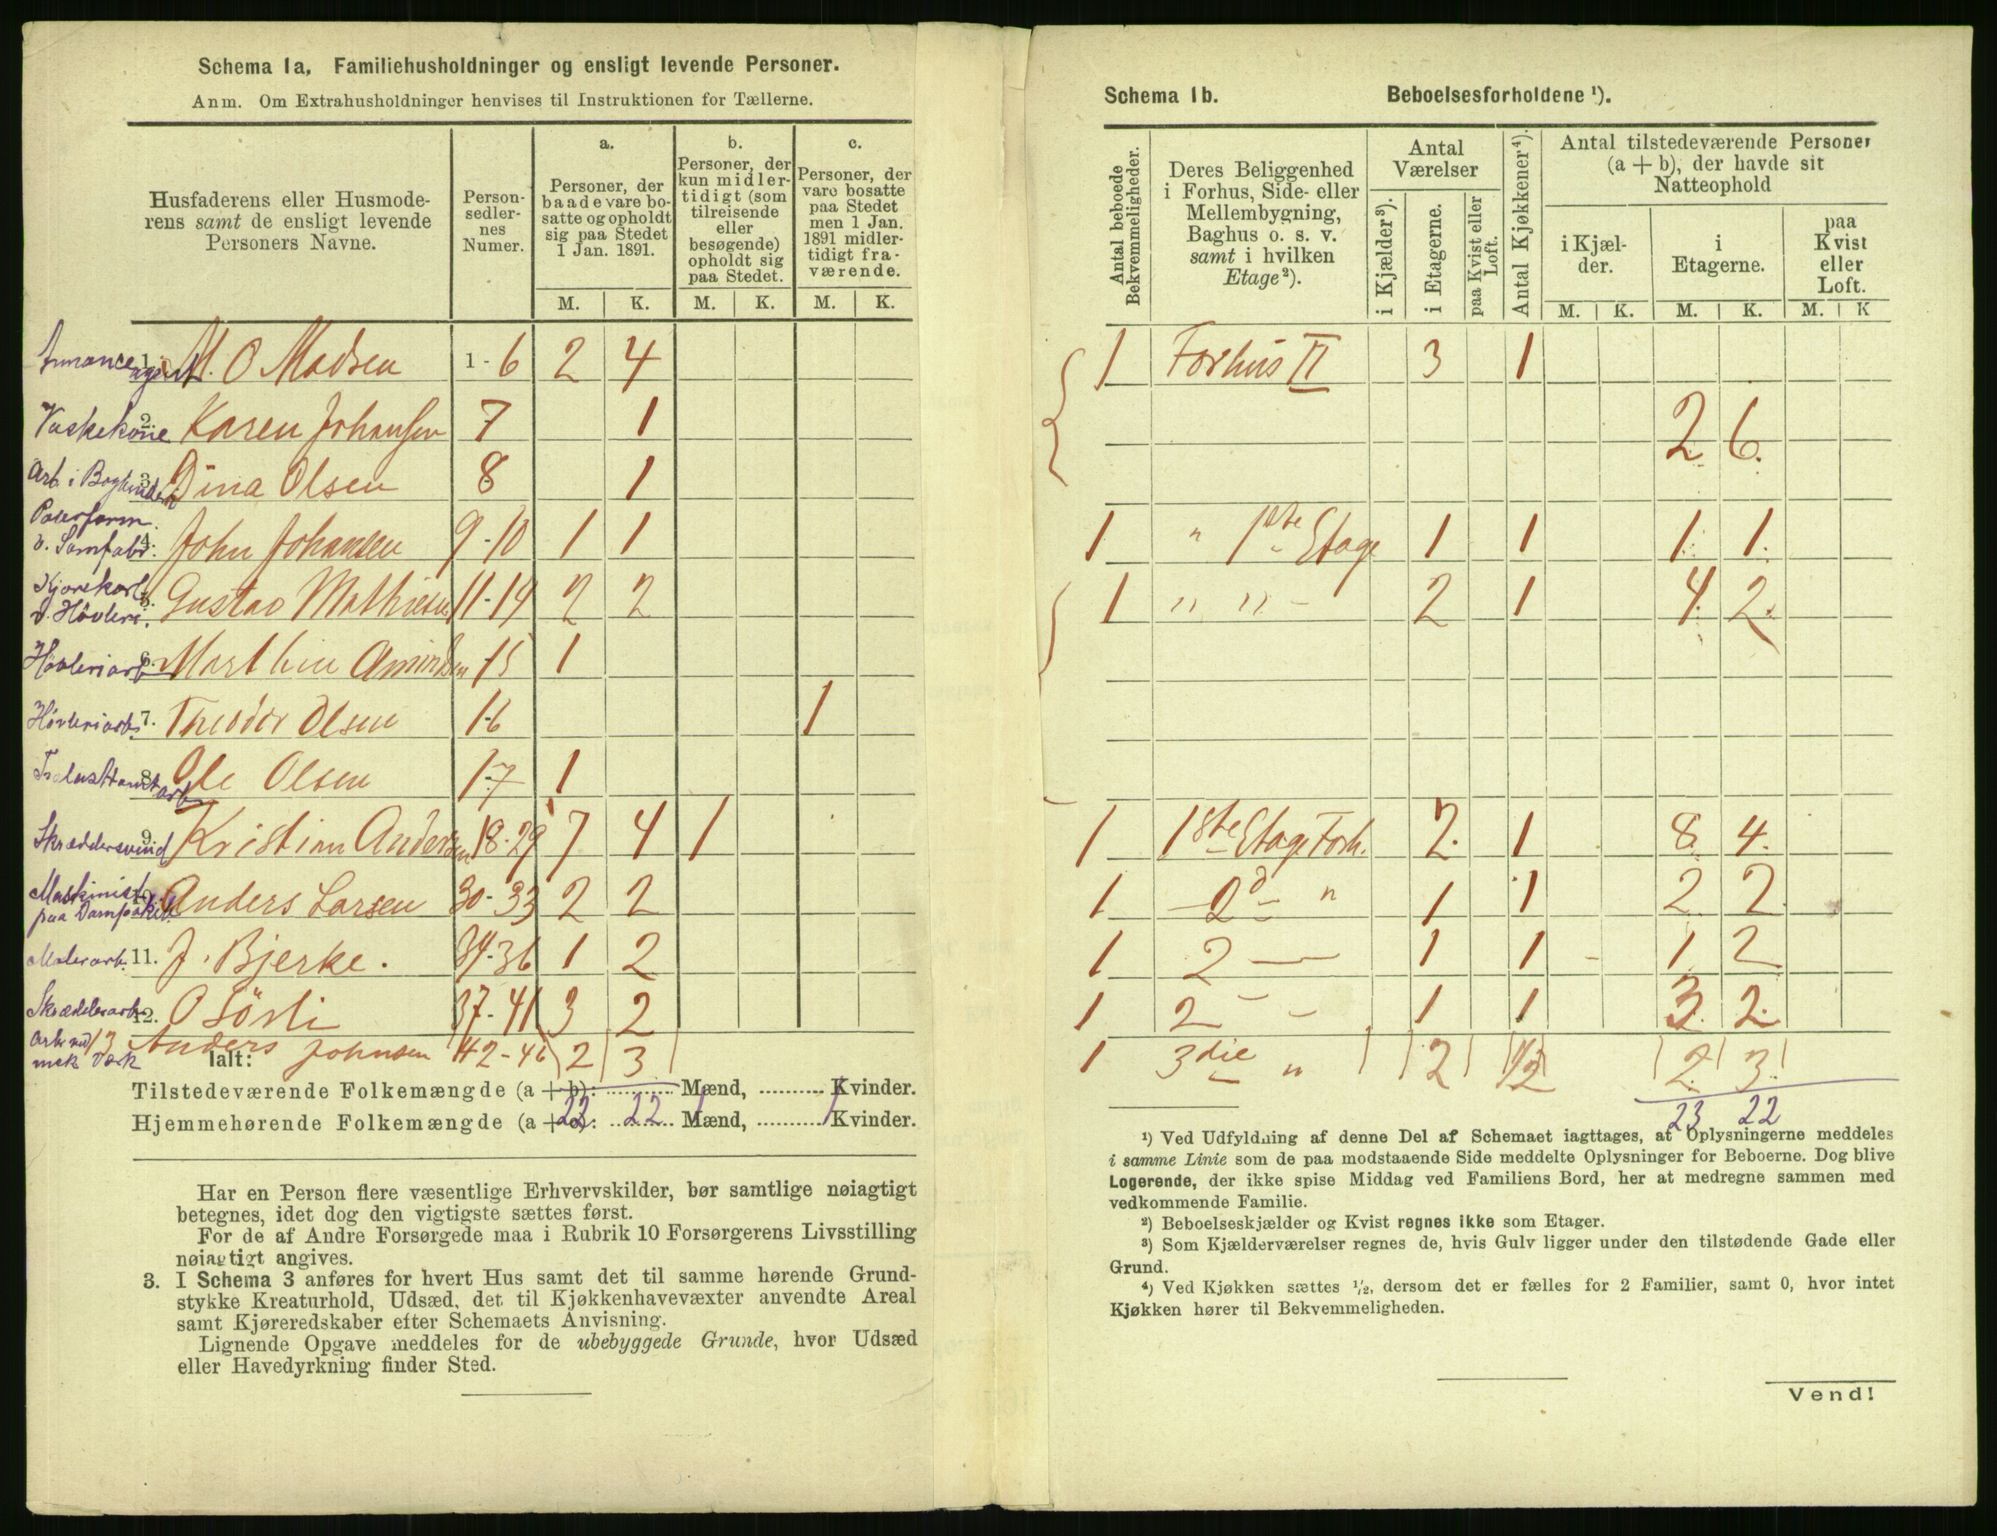 Schema 1a. Familiehusholdninger og ensligt levende Personer.
Anm. Om Extrahusholdninger henvises til Instruktionen for Tællerne.
Husfaderens eller Husmoderens samt de ensligt levende Personers Navne.
Personsedlernes Numer.
a. Personer, der baade vare bosatte og opholdt sig paa Stedet 1 Jan. 1891.
b. Personer, der kun midlertidigt (som tilreisende eller besøgende) opholdt sig paa Stedet.
c. Personer, der vare bosatte paa Stedet men 1 Jan. 1891 midlertidigt fraværende.
M. K. M. K. M. K.
Annonceagent 1. M. O Madsen 1-6 2 4
Vaskekone 2. Karen Johansen 7 1
Arb. i Bogbinderi 3. Dina Olsen 8 1
4. John Johansen 9-10 1 1
Kjørekarl v. Høvleri. 5. Gustav Mathiesen 11-14 2 2
Høvleriarb 6. Marthin Amundsen 15 1
Høvleriarb 7. Theodor Olsen 16 1
Trælasttomtarb 8. Ole Olsen 17 1
Skræddersvend 9. Kristian Andersen 18-29 7 4 1
Maskinist paa Dampskib 10. Anders Larsen 30-33 2 2
Malerarb. 11. J. Bjerke. 34-36 1 2
Skrædderarb 12. O Sörli 37-41 3 2
Arb. ved mek Værk 13 Anders Johnsen 42-46 2 3
Ialt:
Tilstedeværende Folkemængde (a + b): ........... Mænd, .......... Kvinder.
22 22 1 1
Hjemmehørende Folkemængde (a + c): ........... Mænd, .......... Kvinder.
Har en Person flere væsentlige Erhvervskilder, bør samtlige nøiagtigt
betegnes, idet dog den vigtigste sættes først.
For de af Andre Forsørgede maa i Rubrik 10 Forsørgerens Livsstilling
nøiagtigt angives.
3. I Schema 3 anføres for hvert Hus samt det til samme hørende Grund-
stykke Kreaturhold, Udsæd, det til Kjøkkenhavevæxter anvendte Areal
samt Kjøreredskaber efter Schemaets Anvisning.
Lignende Opgave meddeles for de ubebyggede Grunde, hvor Udsæd
eller Havedyrkning finder Sted.
Schema 1b. Beboelsesforholdene ¹).
Antal beboede Bekvemmeligheder.
Deres Beliggenhed i Forhus, Side- eller Mellembygning, Baghus o. s. v. samt i hvilken Etage²).
Antal Værelser
i Kjælder³).
i Etagerne.
paa Kvist eller Loft.
Antal Kjøkkener⁴).
Antal tilstedeværende Personer (a + b), der havde sit Natteophold
i Kjælder.
i Etagerne.
paa Kvist eller Loft.
M. K. M. K. M. K
1 Forhus II 3 1
2 6.
1 " 1ste Etage 1 1 1 1.
1 " " - 2 1 4. 2.
1 1ste Etage Forh. 2. 1 8. 4.
1 2d " 1 1 2 2.
1 2 — 1 1 - 1 2
1 2 - 1 1 3. 2.
1 3die " 2 1/2 2. 3.
23 22
¹) Ved Udfyldning af denne Del af Schemaet iagttages, at Oplysningerne meddeles
i samme Linie som de paa modstaaende Side meddelte Oplysninger for Beboerne. Dog blive
Logerende, der ikke spise Middag ved Familiens Bord, her at medregne sammen med
vedkommende Familie.
²) Beboelseskjælder og Kvist regnes ikke som Etager.
³) Som Kjælderværelser regnes de, hvis Gulv ligger under den tilstødende Gade eller
Grund.
⁴) Ved Kjøkken sættes ¹/₂, dersom det er fælles for 2 Familier, samt 0, hvor intet
Kjøkken hører til Bekvemmeligheden.
Vend!